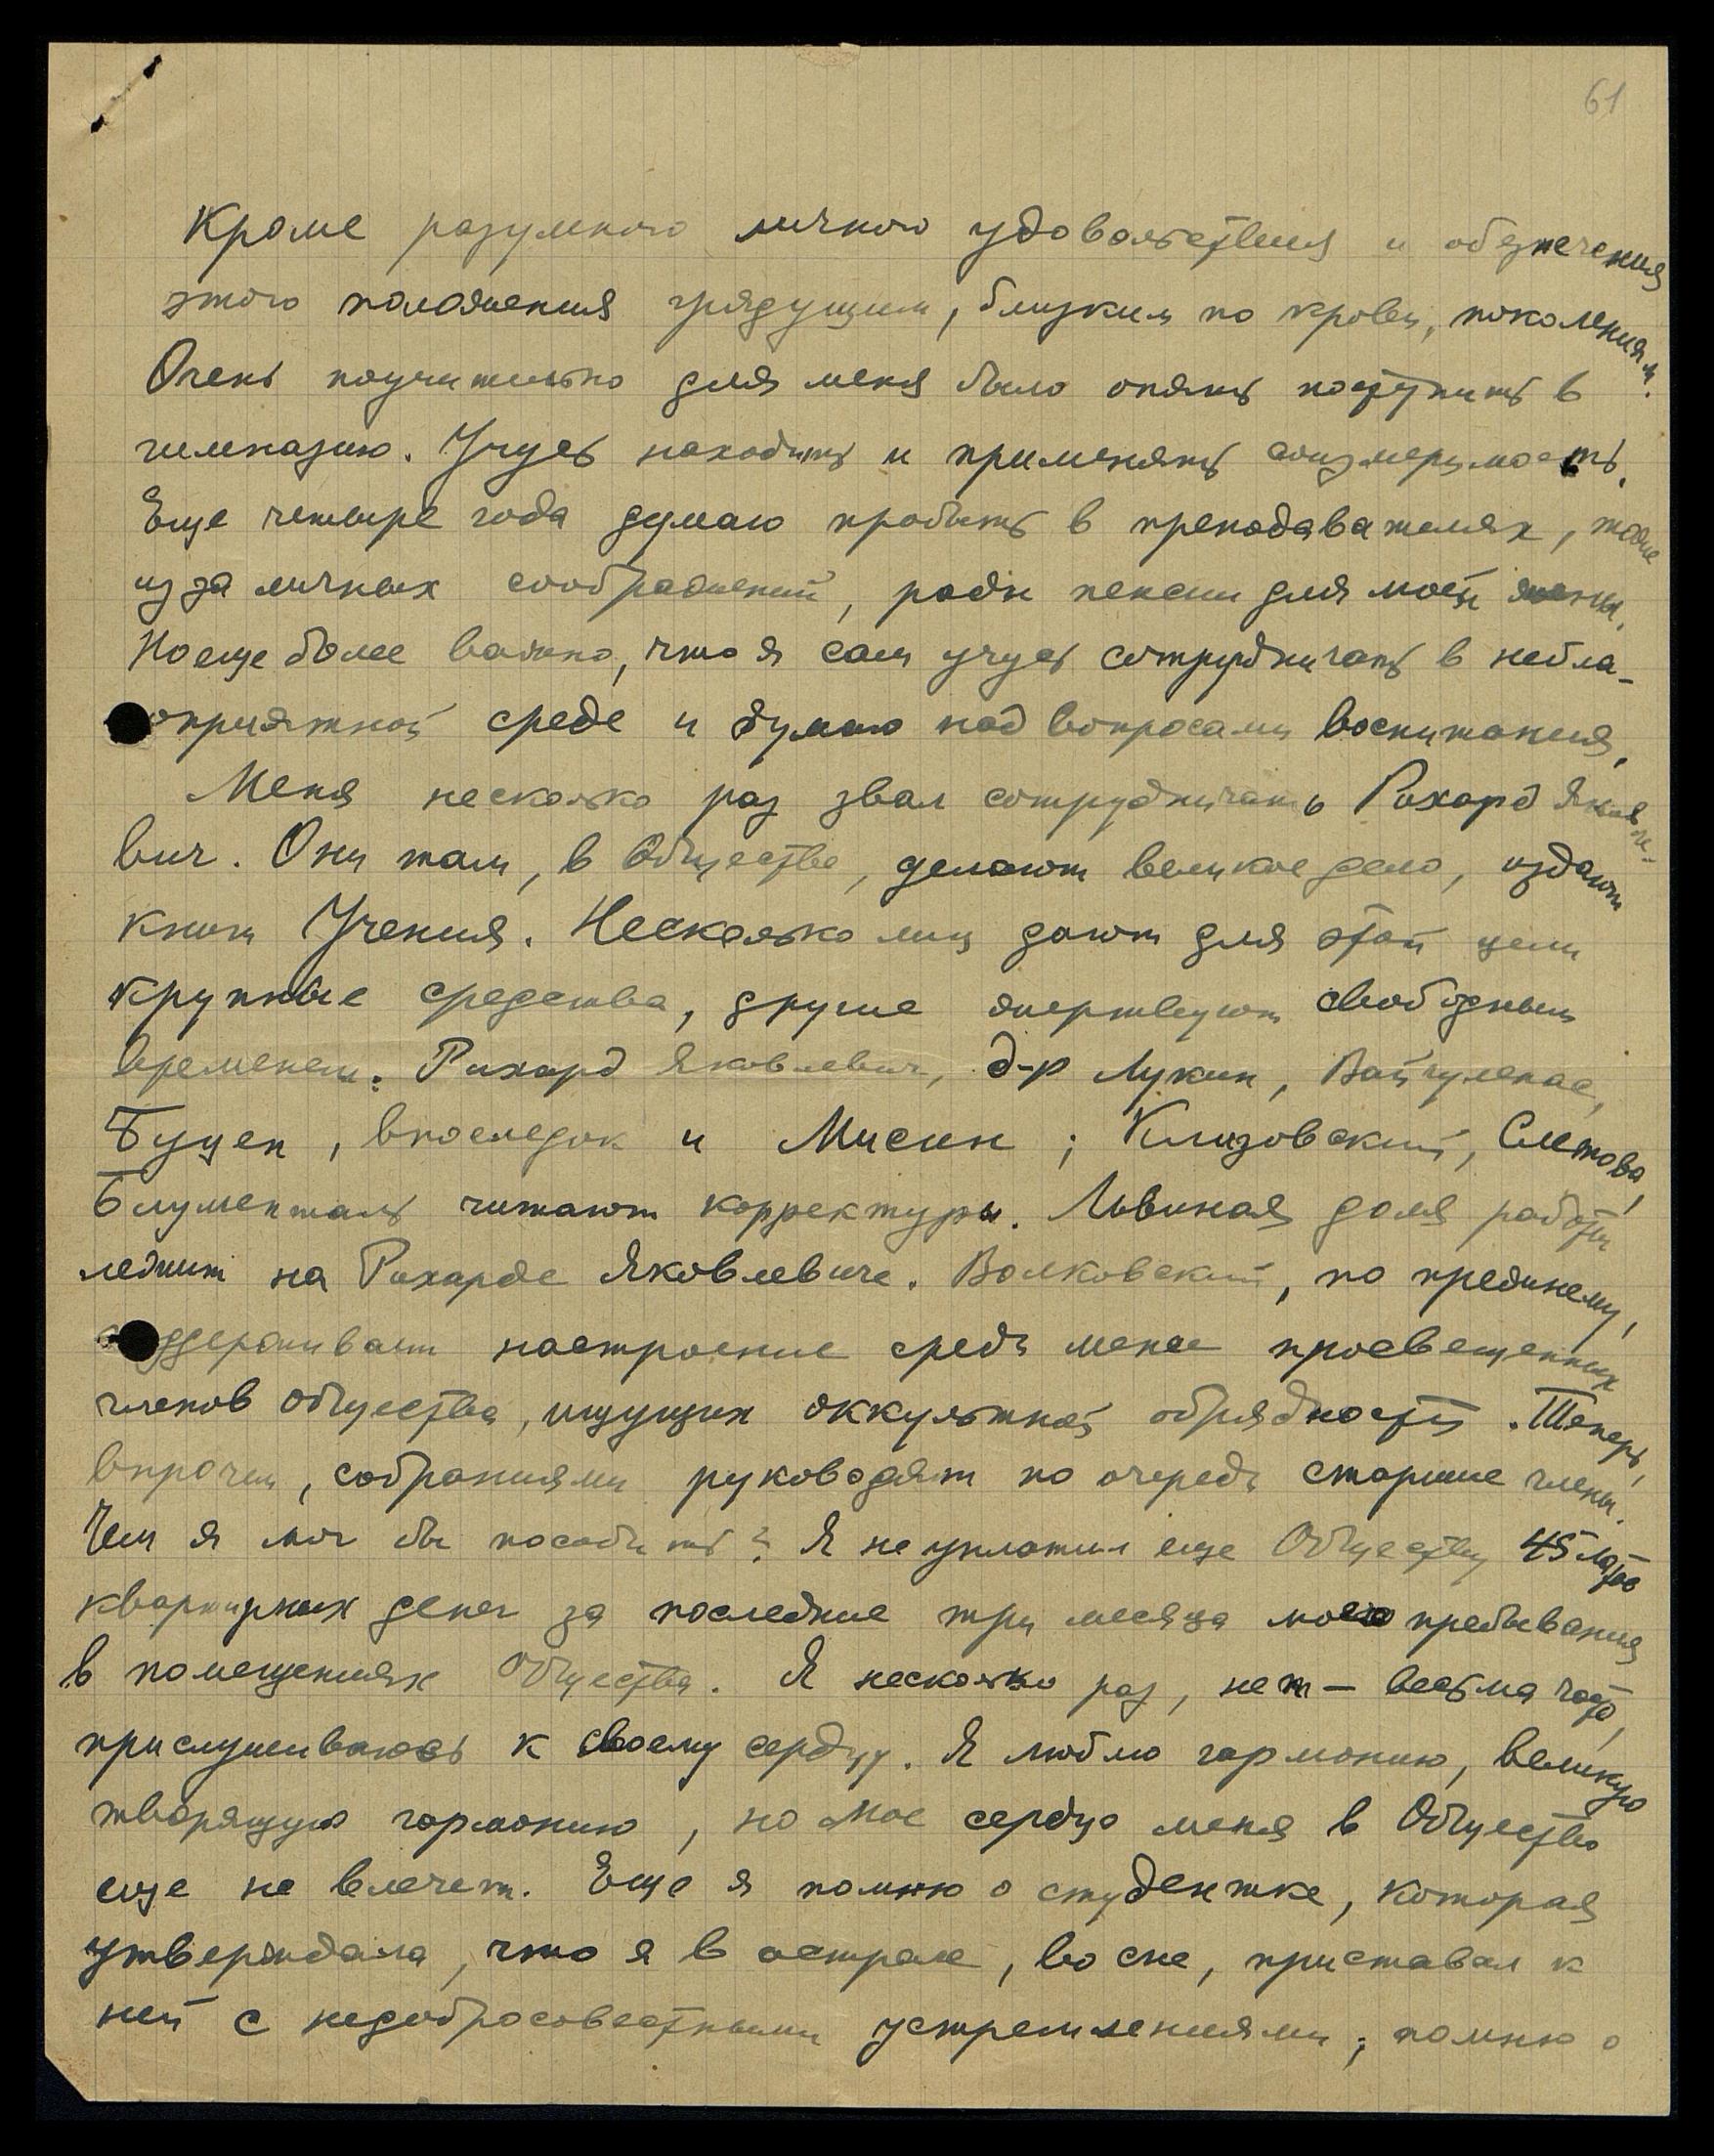 61
Кроме разумного личного удовольствия и обезпечения
этого положения грядущим, близким по крови, поколениям.
Очень поучительно для меня было опять поступить в
гимназию. Учусь находить и применять соизмеримость.
Еще четыре года думаю пробыть в преподавателях, тоже
из за личных соображений, ради пенсии для моей жены.
Но еще более важно, что я сам учусь сотрудничать в небла-
оприятной среде и думаю над вопросами воспитания.
Меня несколько раз звал сотрудничать Рихард Яковле-
вич. Они там, в Обществе, делают великое дело, издают
книги Учения. Несколько лиц дают для этой цели
крупные средства, другие жертвуют свободным
временем. Рихард Яковлевич, д-р Лукин, Вайчуленас,
Буцен, впоследок и Мисин; Клизовский, Сметова,
Блументаль читают корректуры. Львиная доля работы
лежит на Рихарде Яковлевиче. Валковский, по прежнему,
поддерживает настроение средь менее просвещенных
членов Общества, ищущих оккультной обрядности. Теперь,
впрочем, собраниями руководят по очередь старшие члены.
Чем я мог бы пособить? Я не уплатил еще Обществу 45 латов
квартирных денег за последние три месяца моего пребывания
в помещениях Общества. Я несколько раз, нет – весьма часто,
прислушиваюсь к своему сердцу. Я люблю гармонию, великую
творящую гармонию, но мое сердце меня в Общество
еще не влечет. Еще я помню о студентке, которая
утверждала, что я в астрале, во сне, приставал к
ней с недобросовестными устремлениями; помню о